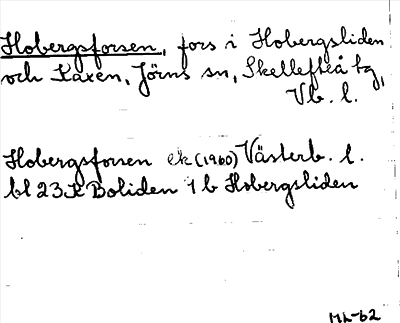 Hobergsforsen, fors i Hobergsliden
och Kaxen, Jörns sn, Skellefteå tg,
Vb. l.
Hobergsforsen ek (1960) Västerb. l.
bl 23K Boliden 1 b Hobergsliden
ML-62